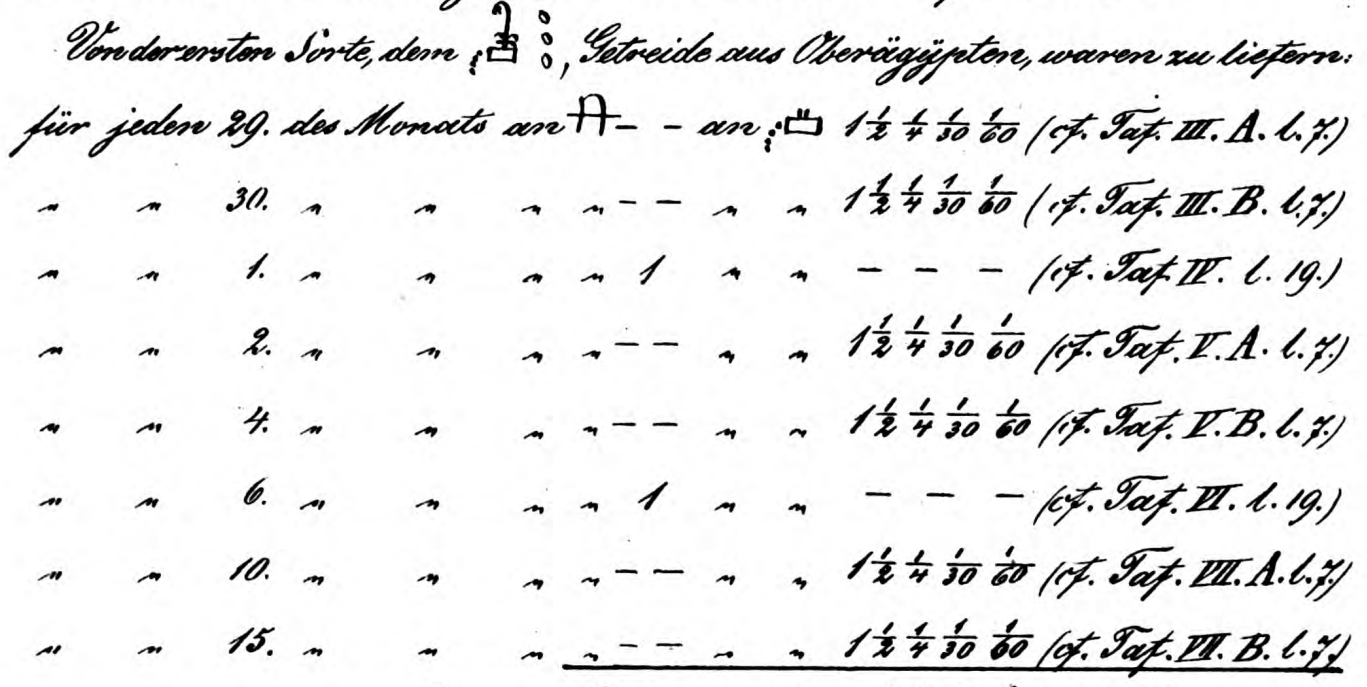 Von der ersten Sorte, dem , Getreide aus Oberägypten, waren zu liefern:
für jeden 29. des Monats an – – an 1 1/2 1/4 1/30 1/60 (cf. Taf. III. A. l. 7.)
„ „ 30. „ „ „ „ – – „ „ 1 1/2 1/4 1/30 1/60 (cf. Taf. III. B. l. 7.)
„ „ 1. „ „ „ „ 1 „ „ – – – (cf. Taf. IV. l. 19.)
„ „ 2. „ „ „ „ – – „ „ 1 1/2 1/4 1/30 1/60 (cf. Taf. V. A. l. 7.)
„ „ 4. „ „ „ „ – – „ „ 1 1/2 1/4 1/30 1/60 (cf. Taf. V. B. l. 7.)
„ „ 6. „ „ „ „ 1 „ „ – – – (cf. Taf. VI. l. 19.)
„ „ 10. „ „ „ „ – – „ „ 1 1/2 1/4 1/30 1/60 (cf. Taf. VII. A. l. 7.)
„ „ 15. „ „ „ „ – – „ „ 1 1/2 1/4 1/30 1/60 (cf. Taf. VII. B. l. 7.)